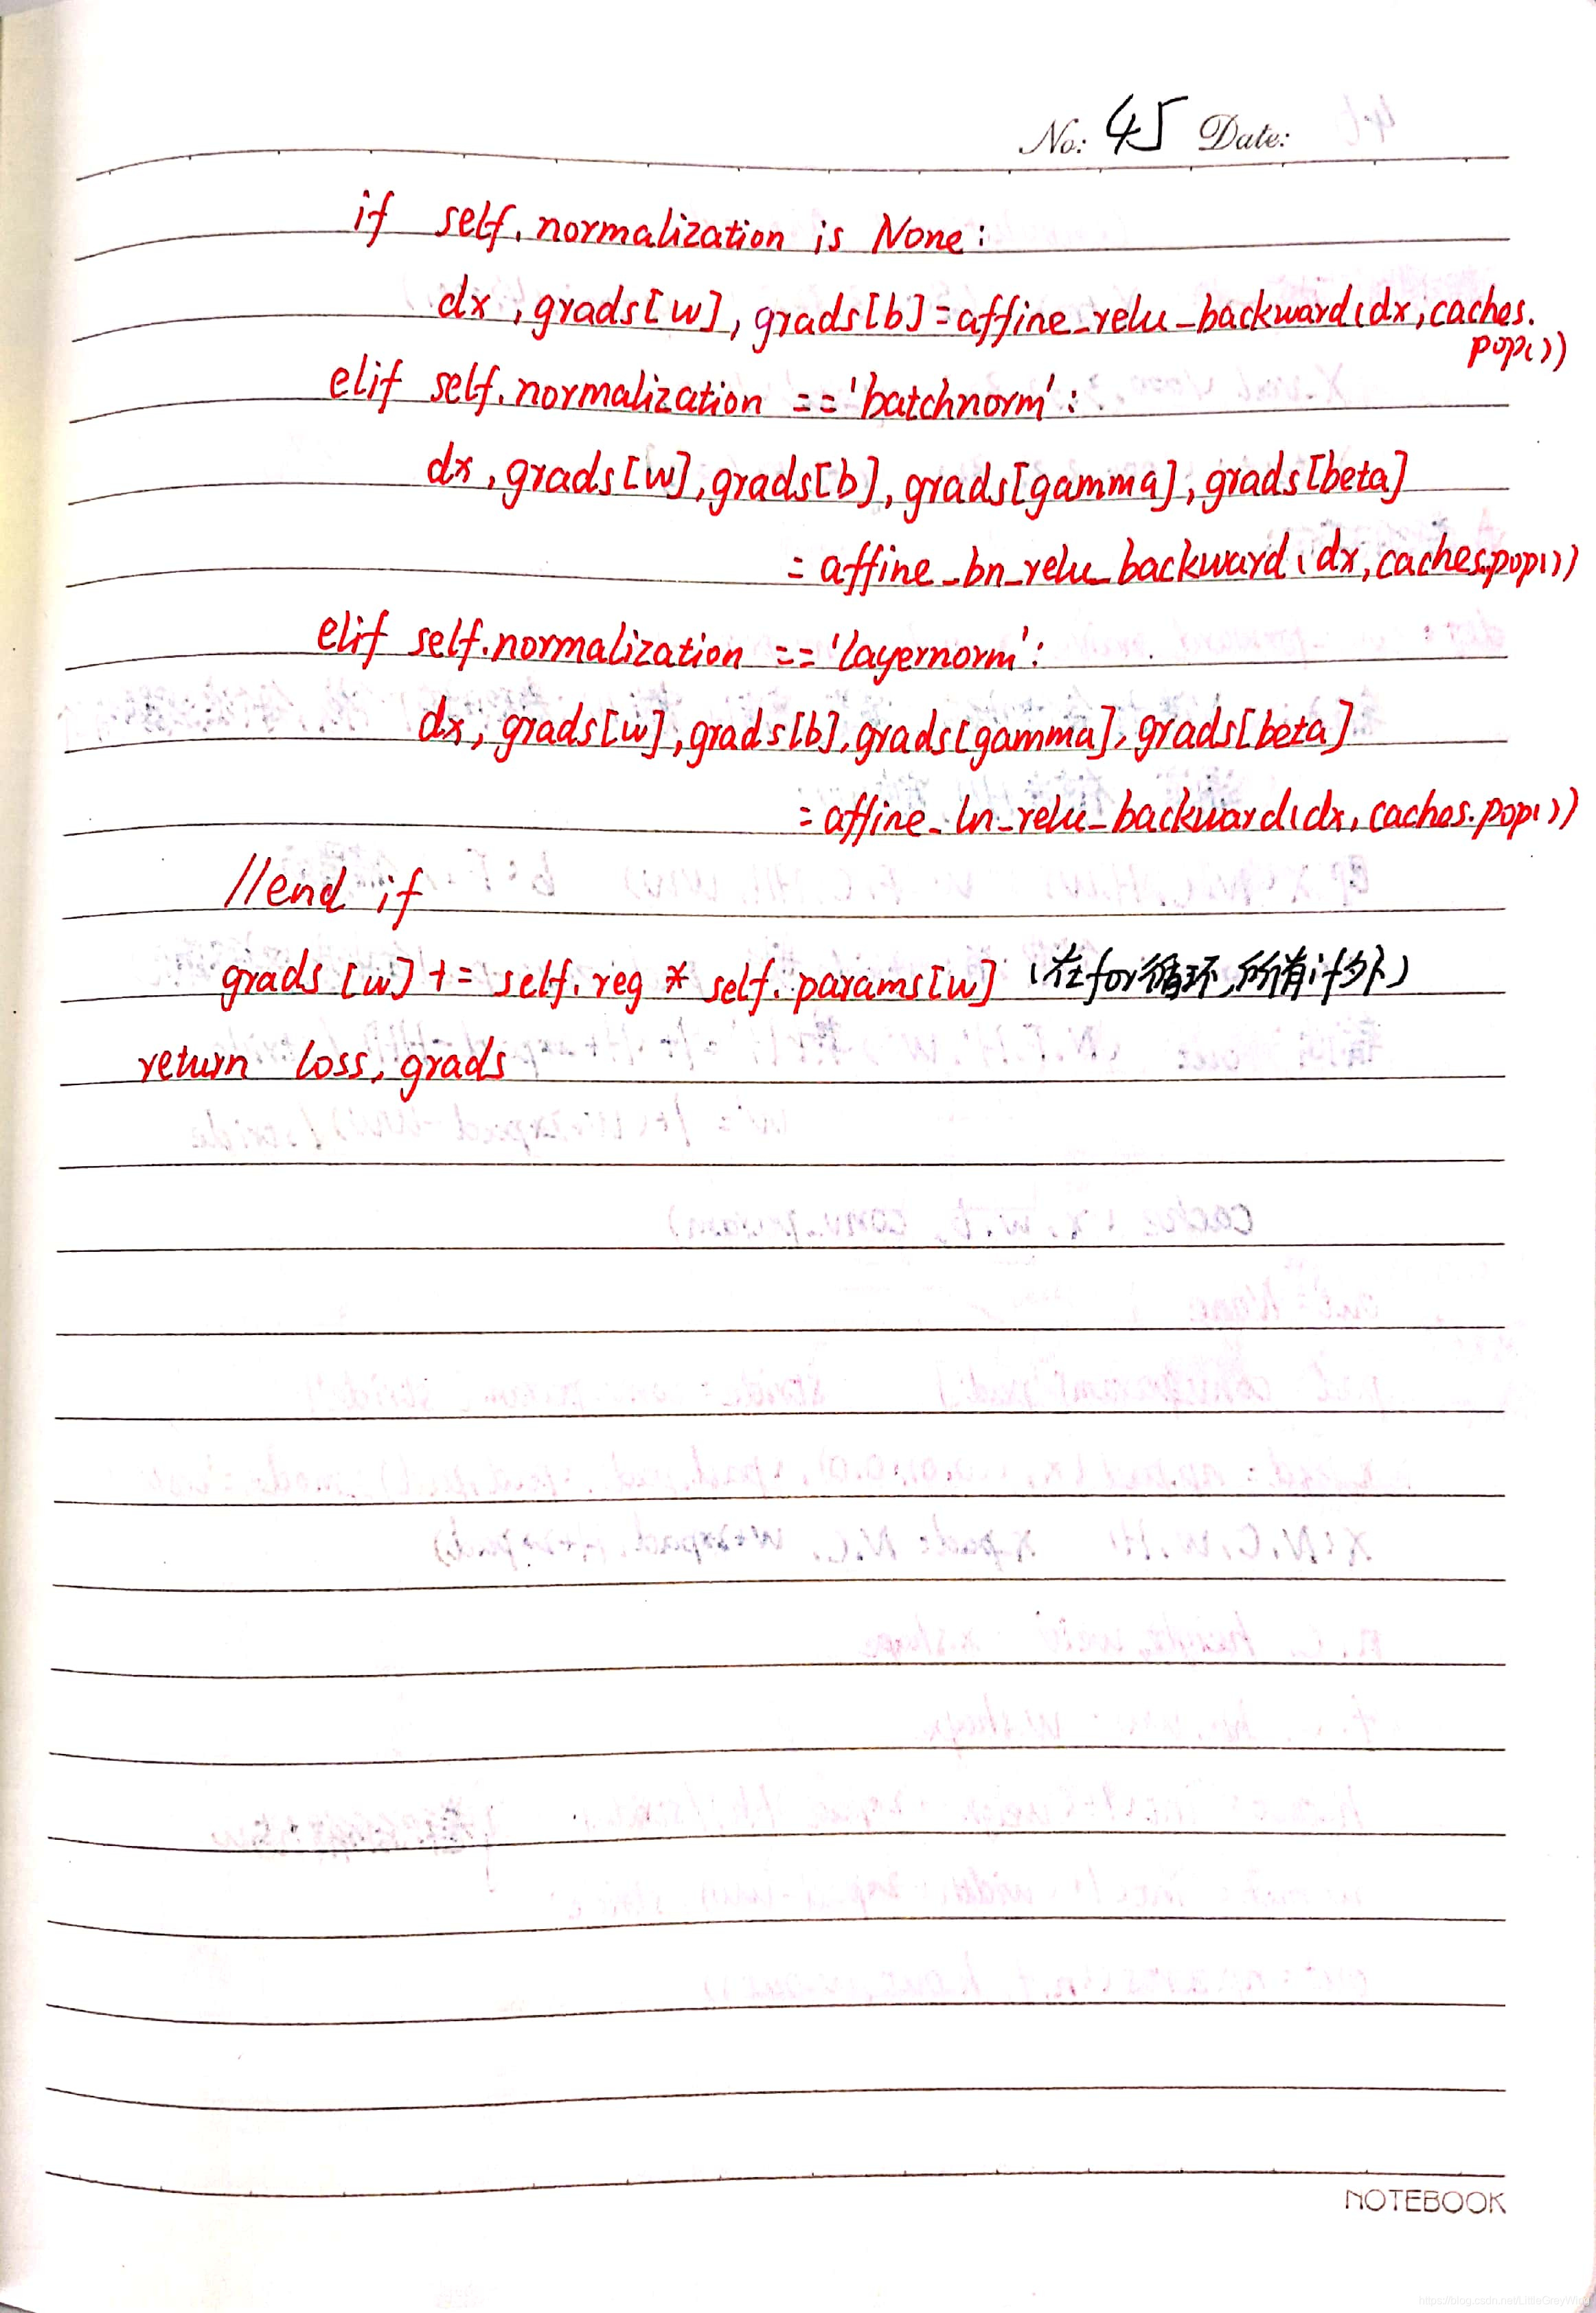 No: 45 Date:
if self.normalization is None:
dx, grads[w], grads[b]=affine_relu_backward(dx, caches.
pop())
elif self.normalization =='batchnorm':
dx, grads[w], grads[b], grads[gamma], grads[beta]
= affine_bn_relu_backward(dx, caches.pop())
elif self.normalization =='layernorm':
dx, grads[w], grads[b], grads[gamma], grads[beta]
= affine_ln_relu_backward(dx, caches.pop())
//end if
grads [w] += self.reg * self.params[w] (在for循环,所有if外)
return loss, grads
NOTEBOOK